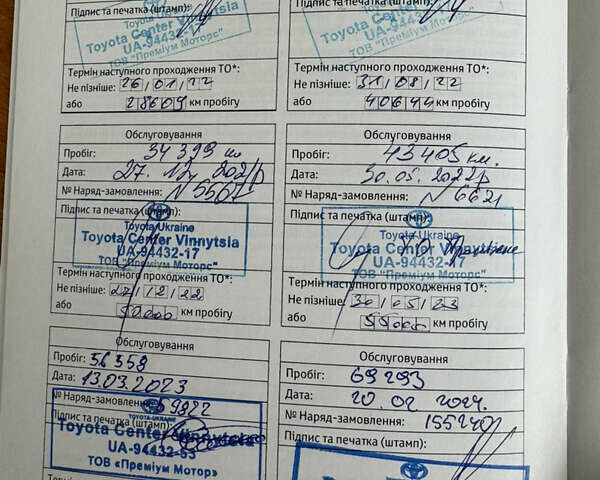 Підпис та печатка (штамп):
Toyota Center Vinnytsia
UA-94432-17
ТОВ "Преміум Моторс"
Термін наступного проходження ТО*:
Не пізніше: 26/01/22
або 28609 км пробігу
Підпис та печатка (штамп):
Toyota Center Vinnytsia
UA-94432-17
ТОВ "Преміум Моторс"
Термін наступного проходження ТО*:
Не пізніше: 31/08/22
або 40644 км пробігу
Обслуговування
Пробіг: 34 399 км
Дата: 27.12.2021р
№ Наряд-замовлення: N5507
Підпис та печатка (штамп):
Toyota Ukraine
Toyota Center Vinnytsia
UA-94432-17
ТОВ "Преміум Моторс"
Термін наступного проходження ТО*:
Не пізніше: 27/12/22
або 50000 км пробігу
Обслуговування
Пробіг: 43405 км.
Дата: 30.05.2022р
№ Наряд-замовлення: N6621
Підпис та печатка (штамп):
Toyota Ukraine
Toyota Center Vinnytsia
UA-94432-17
ТОВ "Преміум Моторс"
Термін наступного проходження ТО*:
Не пізніше: 30/05/23
або 55000 км пробігу
Обслуговування
Пробіг: 56 359
Дата: 13.03.2023
№ Наряд-замовлення: 59822
Підпис та печатка (штамп):
TOYOTA-UKRAINE
Toyota Center Vinnytsia
UA-94432-53
ТОВ «Преміум Мотор»
Термін
Обслуговування
Пробіг: 69 293
Дата: 20.02 2024.
№ Наряд-замовлення: 155240
Підпис та печатка (штамп):